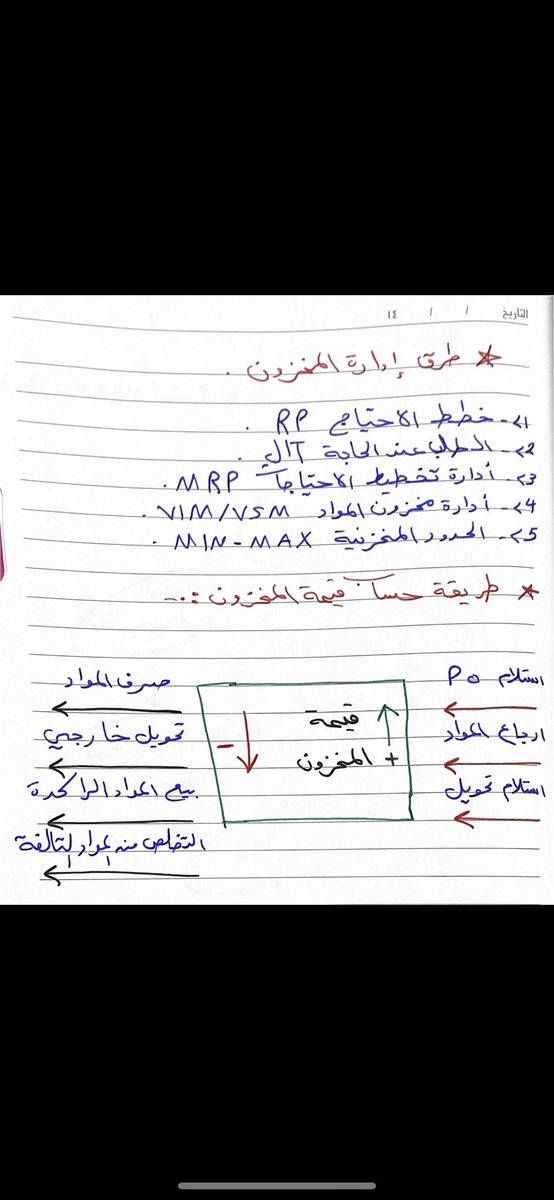 التاريخ / / ١٤
* طرق إدارة المخزون .
١- خطط الاحتياج RP .
٢- الطلب عند الحاجة JIT .
٣- أدارة تخطيط الاحتياجات MRP .
٤- أدارة مخزون المواد VIM/VSM .
٥- الحدود المخزنية MIN-MAX .
* طريقة حساب قيمة المخزون :-
استلام PO
صرف المواد
قيمة
ارجاع المواد
تحويل خارجي
+ المخزون -
استلام تحويل
بيع المواد الراكدة
التخلص من المواد التالفة